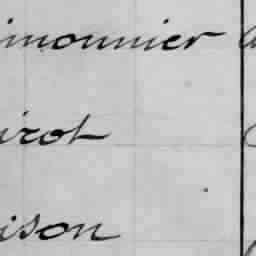 imonnier
irot
ison